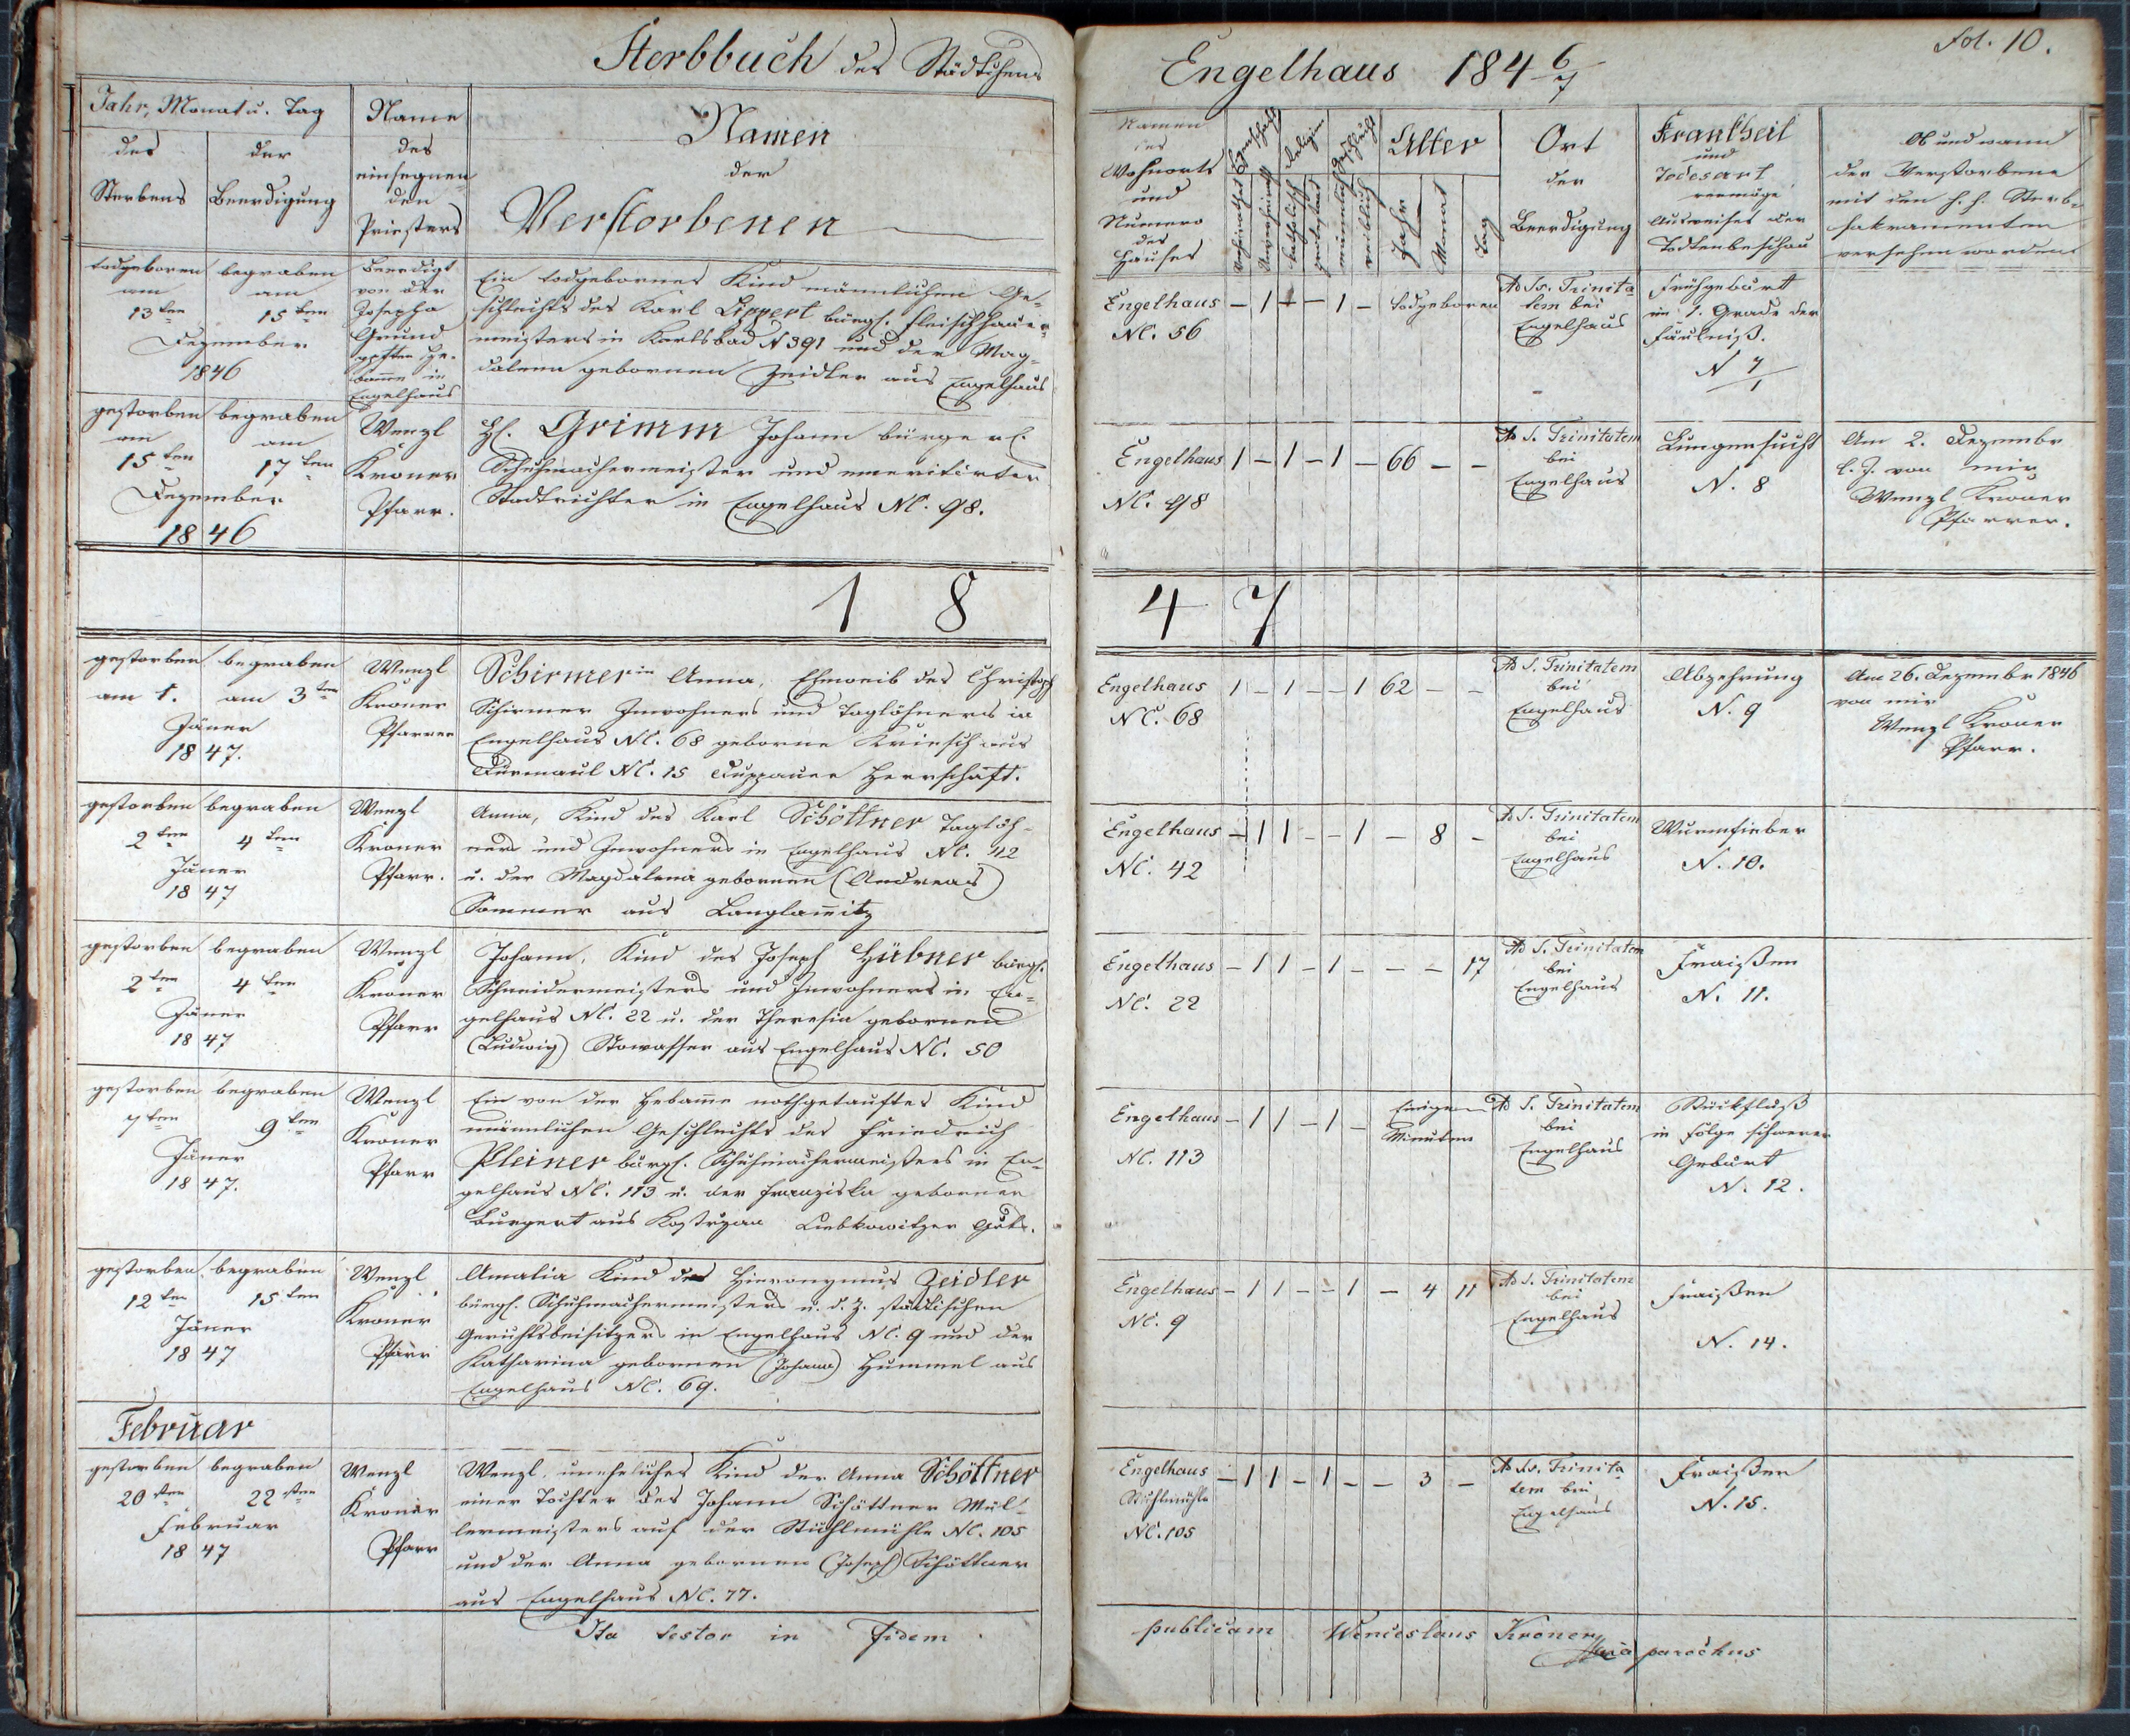 Sterbbuch des Städtchens
Jahr, Monat u. Tag
des Sterbens
der Beerdigung
Name
des
einsegnen-
den
Priesters
Namen
der
Verstorbenen
todgeboren begraben
am am
13ten 15ten
Dezember
1846
Beerdigt
von der
Josepha
Grund
Hebamme in
Engelhaus
Ein todgebornes Kind männlichen Ge-
schlechts des Karl Lippert bürgl. Fleischhauer-
meisters in Karlsbad N 391 und der Mag-
dalena gebornen Zeidler aus Engelhaus
gestorben begraben
am am
15ten 17ten
Dezember
1846
Wenzl
Kroner
Pfarr.
H. Grimm Johann bürgerl.
Schuhmachermeister und emeritirter
Stadtrichter in Engelhaus NC. 98.
1 8
gestorben begraben
am 1. am 3ten
Jäner
1847.
Wenzl
Kroner
Pfarrer
Schirmerin Anna, Eheweib des Christoph
Schirmer Inwohners und Taglöhners in
Engelhaus NC. 68 geborne Kriesch aus
Dürmaul NC. 15 Duppauer Herrschaft.
gestorben begraben
2ten 4ten
Jäner
1847
Wenzl
Kroner
Pfarr.
Anna, Kind des Karl Schöttner Taglöh-
ners und Inwohners in Engelhaus NC. 42
u. der Magdalena gebornen (Andreas)
Sommer aus Langlamitz
gestorben begraben
2ten 4ten
Jäner
1847
Wenzl
Kroner
Pfarr
Johann, Kind des Joseph Hübner bürgl.
Schneidermeisters und Inwohners in En-
gelhaus NC. 22 u. der Theresia gebornen
(Ludwig) Stowasser aus Engelhaus NC. 50
gestorben begraben
7ten 9ten
Jäner
1847.
Wenzl
Kroner
Pfarr
Ein von der Hebamme nothgetauftes Kind
männlichen Geschlechts des Friedrich
Pleiner bürgl. Schuhmachermeisters in En-
gelhaus NC. 113 u. der Franziska geborner
Burgert aus Kostrzan Liebkowitzer Guts.
gestorben begraben
12ten 15ten
Jäner
1847
Wenzl
Kroner
Pfarr
Amalia Kind des Hieronymus Zeidler
bürgl. Schuhmachermeisters u. d. Z. städtischen
Gerichtsbeisitzers in Engelhaus NC. 9 und der
Katharina gebornen (Johann) Hummel aus
Engelhaus NC. 69.
Februar
gestorben begraben
20sten 22sten
Februar
1847
Wenzl
Kroner
Pfarr
Wenzl, uneheliches Kind der Anna Schöttner
einer Tochter des Johann Schöttner Mül-
lermeisters auf der Stuhlmühle NC. 105
und der Anna gebornen (Joseph) Schöttner
aus Engelhaus NC. 77.
Ita testor in fidem
Engelhaus 1846/7
Fol. 10.
Namen
des
Wohnorts
und
Numero
des
Hauses
Religion
katholisch
männlich
weiblich
Alter
Jahr
Monat
Tag
Ort
der
Beerdigung
Krankheit
und
Todesart
vermöge
Ausweises der
Todtenbeschau
Ob und wann
der Verstorbene
mit den h. h. Sterb-
sakramenten
versehen worden
Engelhaus - 1 1 - 1 - todgeboren
NC. 56
Ad Ss. Trinita-
tem bei
Engelhaus
Frühgeburt
im 1. Grade der
Fäulniß.
N 7/1
Engelhaus 1 - 1 - 1 - 66 - -
NC. 98
Ad S. Trinitatem
bei
Engelhaus
Lungensucht
N. 8
Am 2. Dezembr
l. J. von mir
Wenzl Kroner
Pfarrer.
4 7
Engelhaus 1 - 1 - - 1 62 - -
NC. 68
Ad S. Trinitatem
bei
Engelhaus
Abzehrung
N. 9
Am 26. Dezembr 1846
von mir
Wenzl Kroner
Pfarr.
Engelhaus - 1 1 - - 1 - 8 -
NC. 42
Ad S. Trinitatem
bei
Engelhaus
Wurmfieber
N. 10.
Engelhaus - 1 1 - 1 - - - 17
NC. 22
Ad S. Trinitatem
bei
Engelhaus
Fraißen
N. 11.
Engelhaus - 1 1 - 1 - Einigen
Minuten
NC. 113
Ad S. Trinitatem
bei
Engelhaus
Stückfluß
in Folge schwerer
Geburt
N. 12.
Engelhaus - 1 1 - - 1 - 4 11
NC. 9
Ad S. Trinitatem
bei
Engelhaus
Fraißen
N. 14.
Engelhaus - 1 1 - 1 - - 3 -
Stuhlmühle
NC. 105
Ad Ss. Trinita
tem bei
Engelhaus
Fraißen
N. 15.
publicam Wenceslaus Kroner
parochus